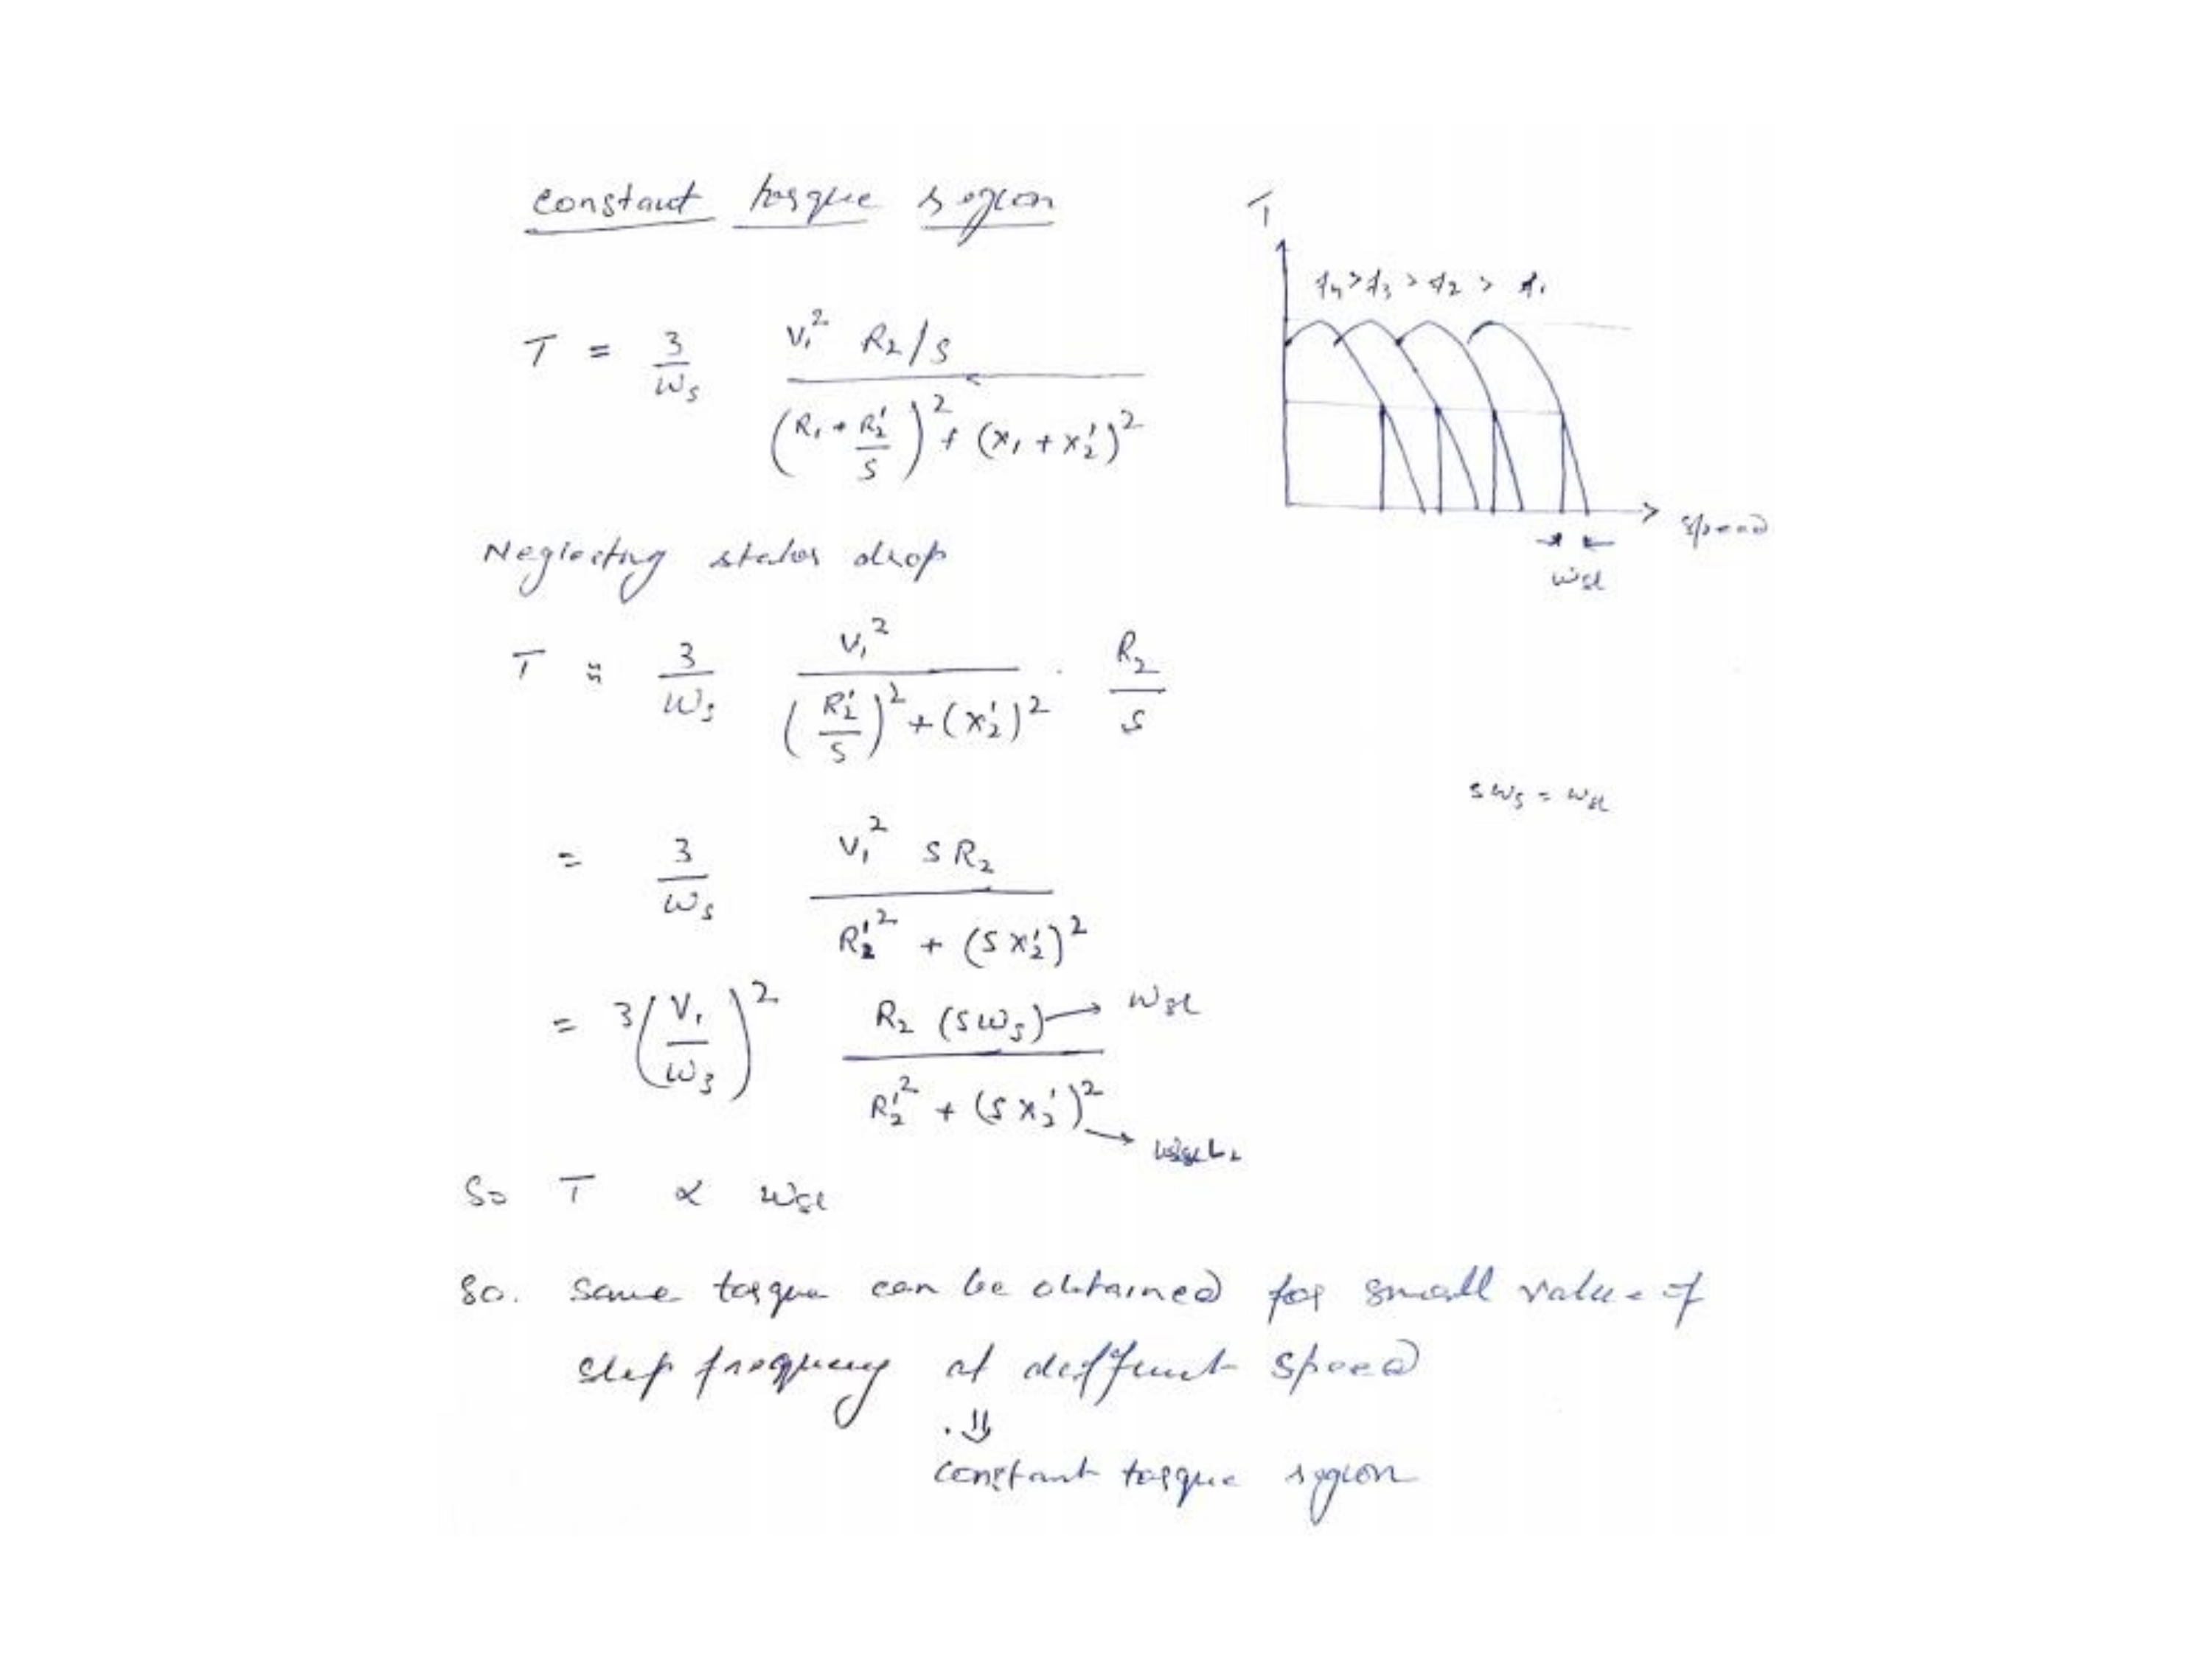 constant torque region
T
f4 > f3 > f2 > f1
T = 3/ws V1² R2/s / (R1 + R2'/s)² + (x1 + x2')²
speed
wsl
Neglecting stator drop
T ≈ 3/ws V1² / (R2'/s)² + (x2')² . R2/s
sws = wsl
= 3/ws V1² s R2 / R2'² + (s x2')²
= 3(V1/ws)² R2 (sws) → wsl / R2'² + (s x2')² → wslL2
So T ∝ wsl
So. same torque can be obtained for small value of
slip frequency at different speed
⇓
constant torque region